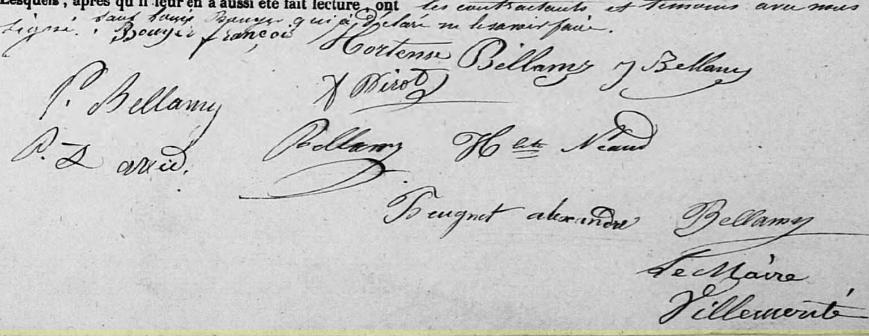 Lesquels, après qu'il leur en a aussi été fait lecture, ont les contractants et témoins avec nous
signé. sauf Louis Bouyer qui a déclaré ne le savoir faire.
Bouyer françois
Hortense Bellamy J Bellamy
P. Bellamy
Bellamy
Néaud
alexandre Bellamy
Le Maire
Villemonté